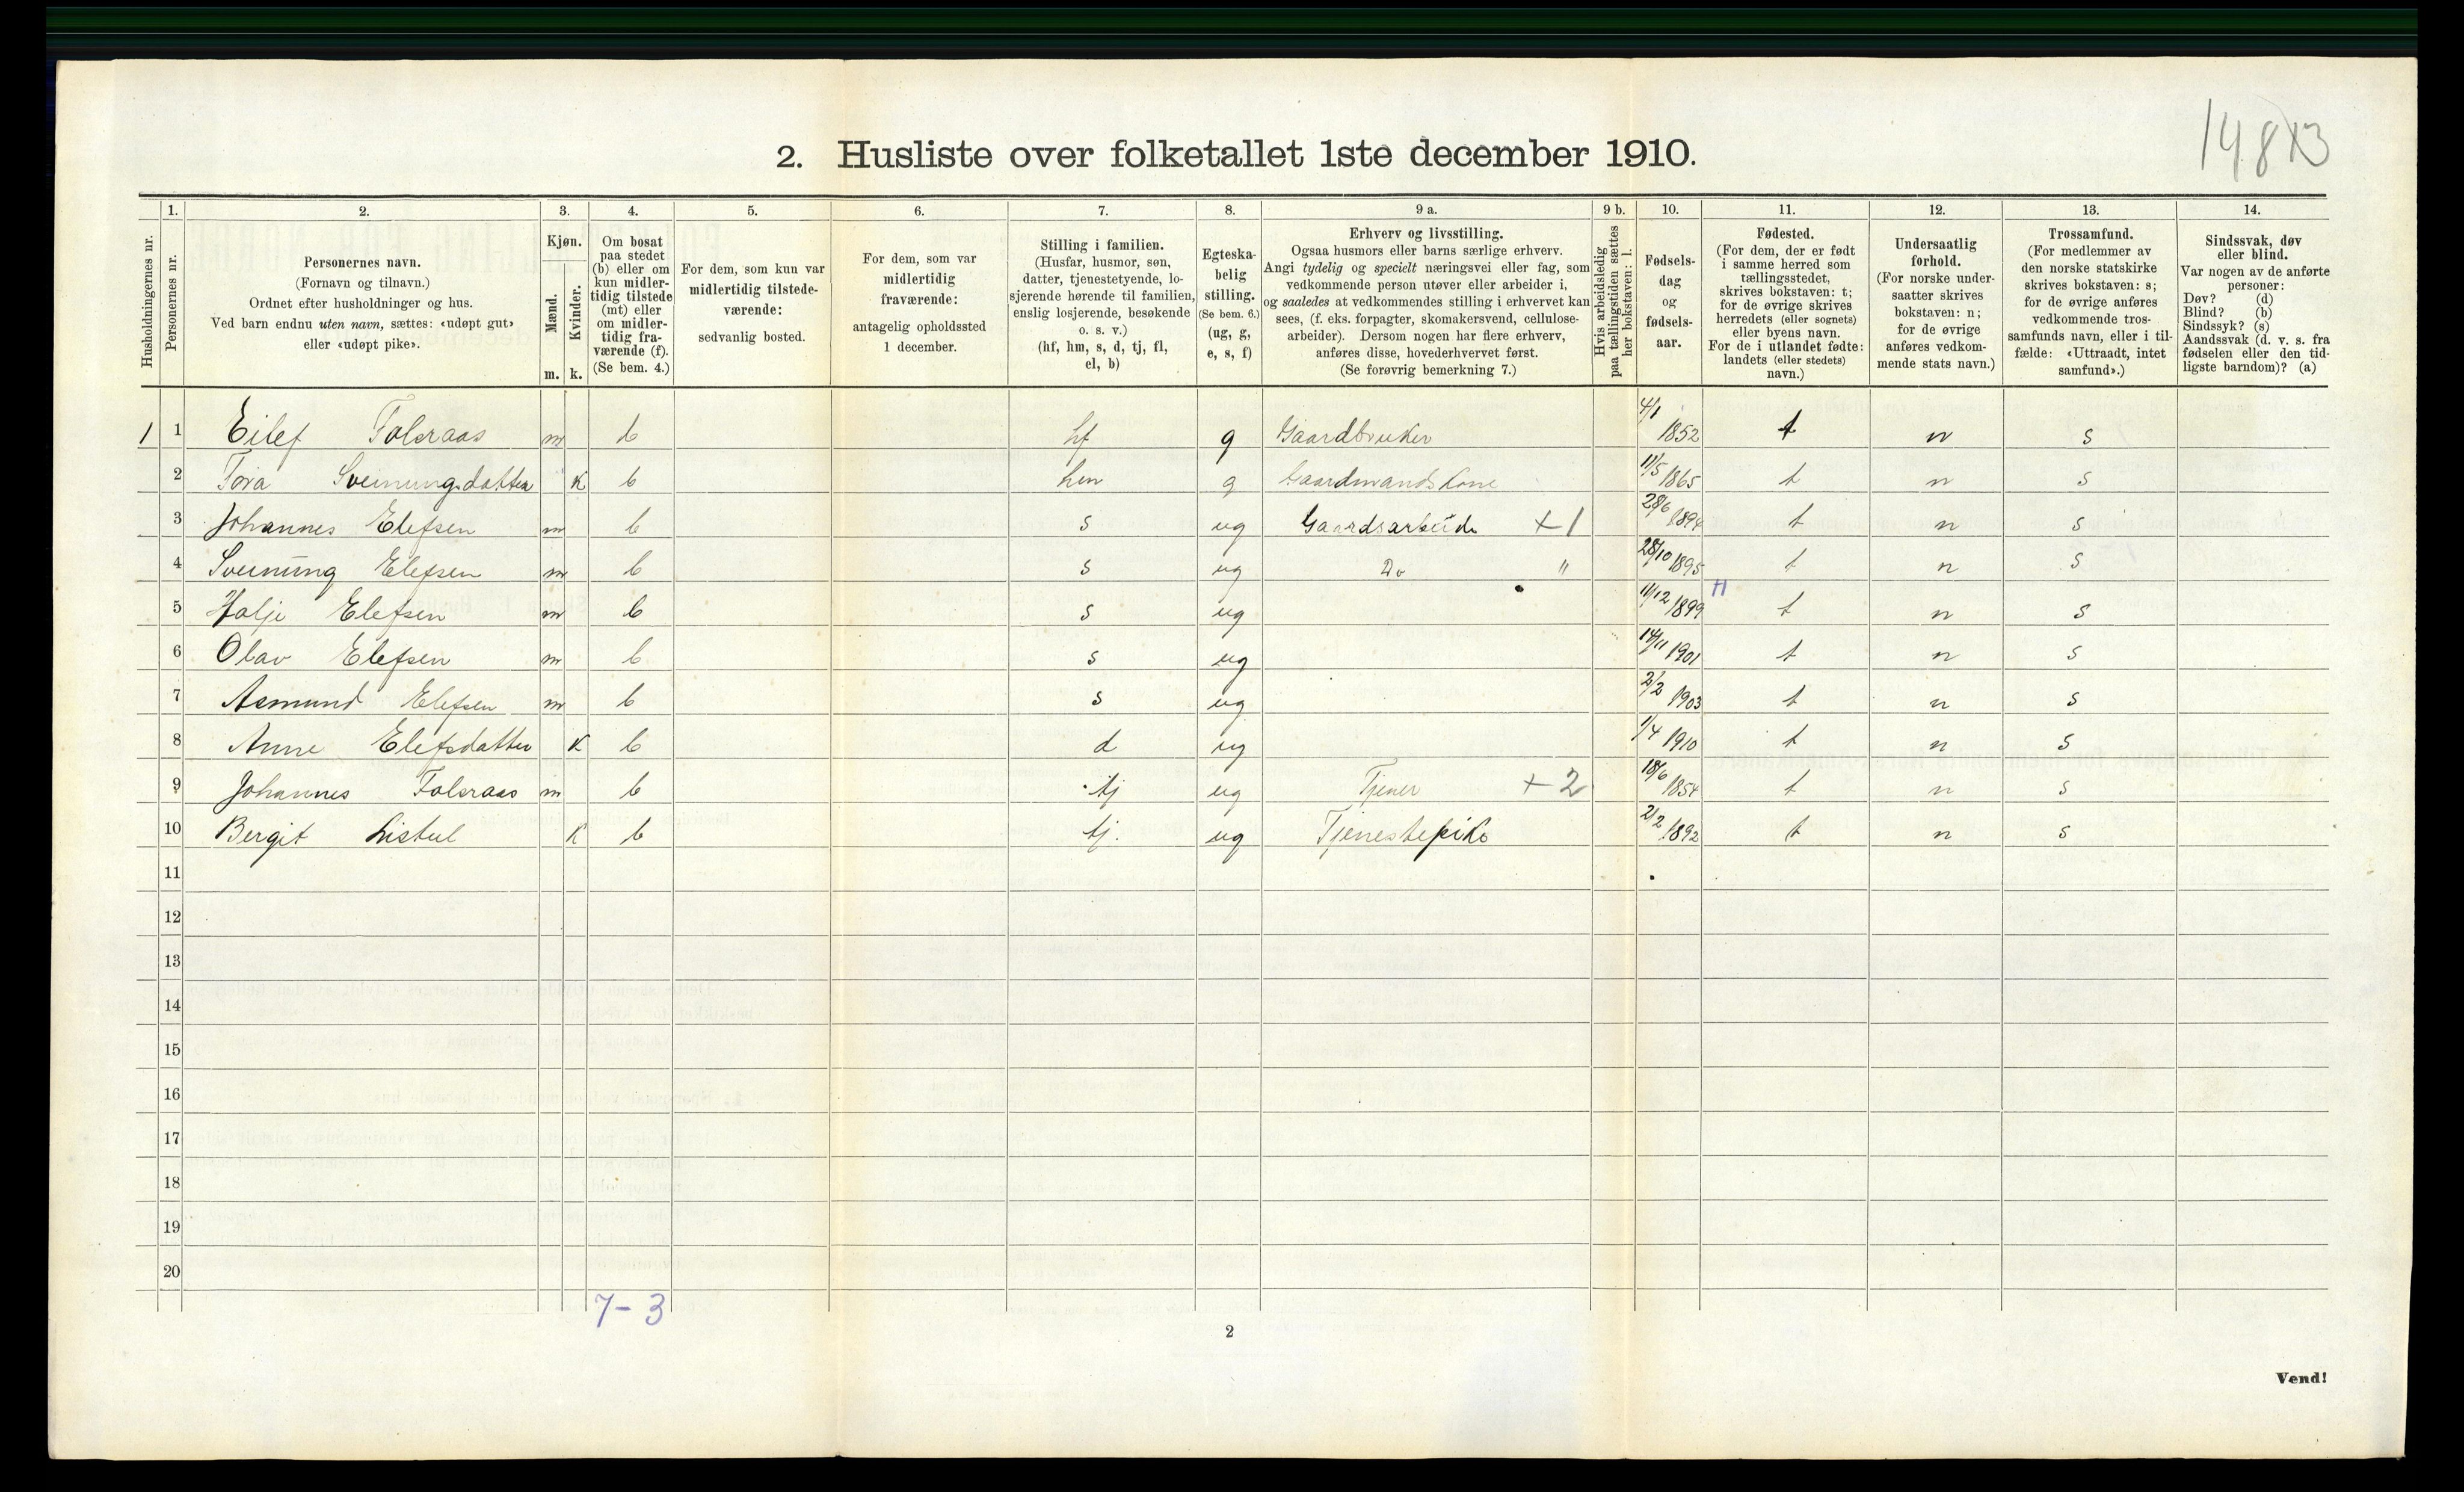 14813
2. Husliste over folketallet 1ste december 1910.
1. 2. 3. 4. 5. 6. 7. 8. 9 a. 9 b. 10. 11. 12. 13. 14.
Husholdningernes nr.
Personernes nr.
Personernes navn.
(Fornavn og tilnavn.)
Ordnet efter husholdninger og hus.
Ved barn endnu uten navn, sættes: «udøpt gut»
eller «udøpt pike».
Kjøn.
Mænd.
Kvinder.
m. k.
Om bosat
paa stedet
(b) eller om
kun midler-
tidig tilstede
(mt) eller
om midler-
tidig fra-
værende (f).
(Se bem. 4.)
For dem, som kun var
midlertidig tilstede-
værende:
sedvanlig bosted.
For dem, som var
midlertidig
fraværende:
antagelig opholdssted
1 december.
Stilling i familien.
(Husfar, husmor, søn,
datter, tjenestetyende, lo-
sjerende hørende til familien,
enslig losjerende, besøkende
o. s. v.)
(hf, hm, s, d, tj, fl,
el, b)
Egteska-
belig
stilling.
(Se bem. 6.)
(ug, g,
e, s, f)
Erhverv og livsstilling.
Ogsaa husmors eller barns særlige erhverv.
Angi tydelig og specielt næringsvei eller fag, som
vedkommende person utøver eller arbeider i,
og saaledes at vedkommendes stilling i erhvervet kan
sees, (f. eks. forpagter, skomakersvend, cellulose-
arbeider). Dersom nogen har flere erhverv,
anføres disse, hovederhvervet først.
(Se forøvrig bemerkning 7.)
Hvis arbeidsledig
paa tællingstiden sættes
her bokstaven: l.
Fødsels-
dag
og
fødsels-
aar.
Fødested.
(For dem, der er født
i samme herred som
tællingsstedet,
skrives bokstaven: t;
for de øvrige skrives
herredets (eller sognets)
eller byens navn.
For de i utlandet fødte:
landets (eller stedets)
navn.)
Undersaatlig
forhold.
(For norske under-
saatter skrives
bokstaven: n;
for de øvrige
anføres vedkom-
mende stats navn.)
Trossamfund.
(For medlemmer av
den norske statskirke
skrives bokstaven: s;
for de øvrige anføres
vedkommende tros-
samfunds navn, eller i til-
fælde: «Uttraadt, intet
samfund».)
Sindssvak, døv
eller blind.
Var nogen av de anførte
personer:
Døv? (d)
Blind? (b)
Sindssyk? (s)
Aandssvak (d. v. s. fra
fødselen eller den tid-
ligste barndom)? (a)
1 1 Eilef Folsraas m b hf g Gaardbruker 4/1 1852 t n s
2 Tora Sveinungsdatter k b hm g Gaardmandskone 11/5 1865 t n s
3 Johannes Elefsen m b s ug Gaardsarbeide +1 28/6 1894 t n s
4 Sveinung Elefsen m b s ug Do " 28/10 1895 t n s
5 Halje Elefsen m b s ug 11/12 1899 H t n s
6 Olav Elefsen m b s ug 14/11 1901 t n s
7 Asmund Elefsen m b s ug 2/2 1903 t n s
8 Anne Elefsdatter k b d ug 1/4 1910 t n s
9 Johannes Folsraas m b tj ug Tjener +2 18/6 1854 t n s
10 Bergit Listul k b tj. ug Tjenestepike 2/2 1892 t n s
11
12
13
14
15
16
17
18
19
20
7-3
2
Vend!